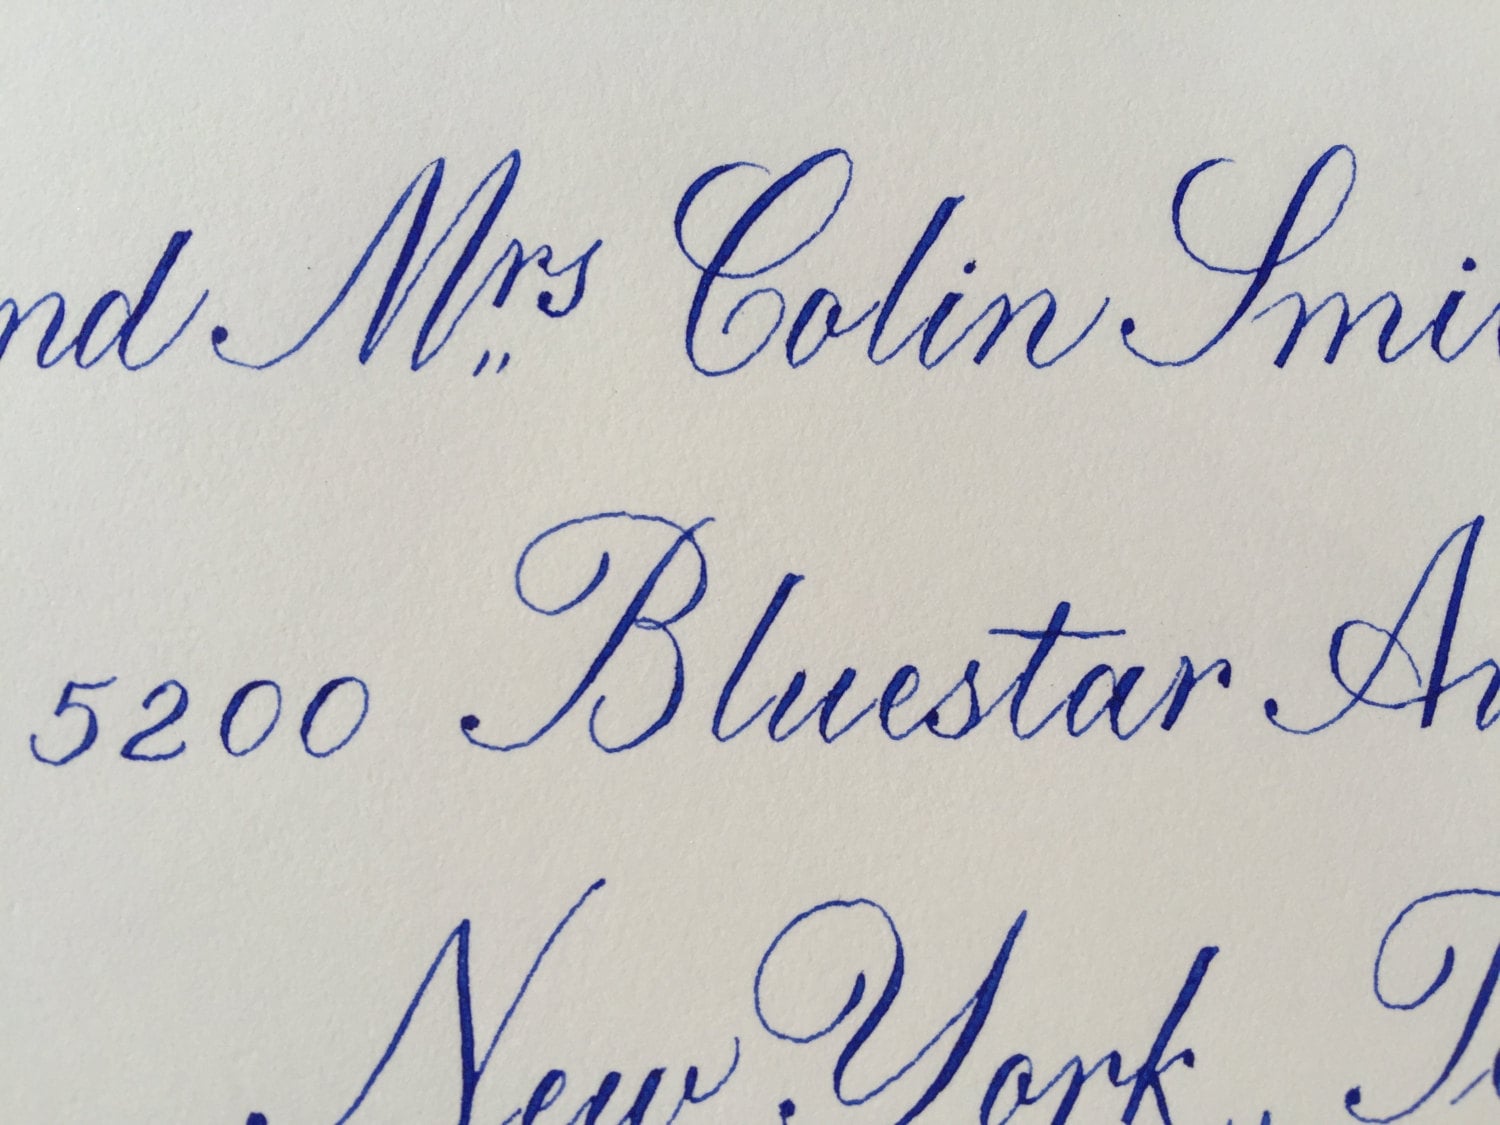 nd Mrs Colin Smi
5200 Bluestar Av
New York,